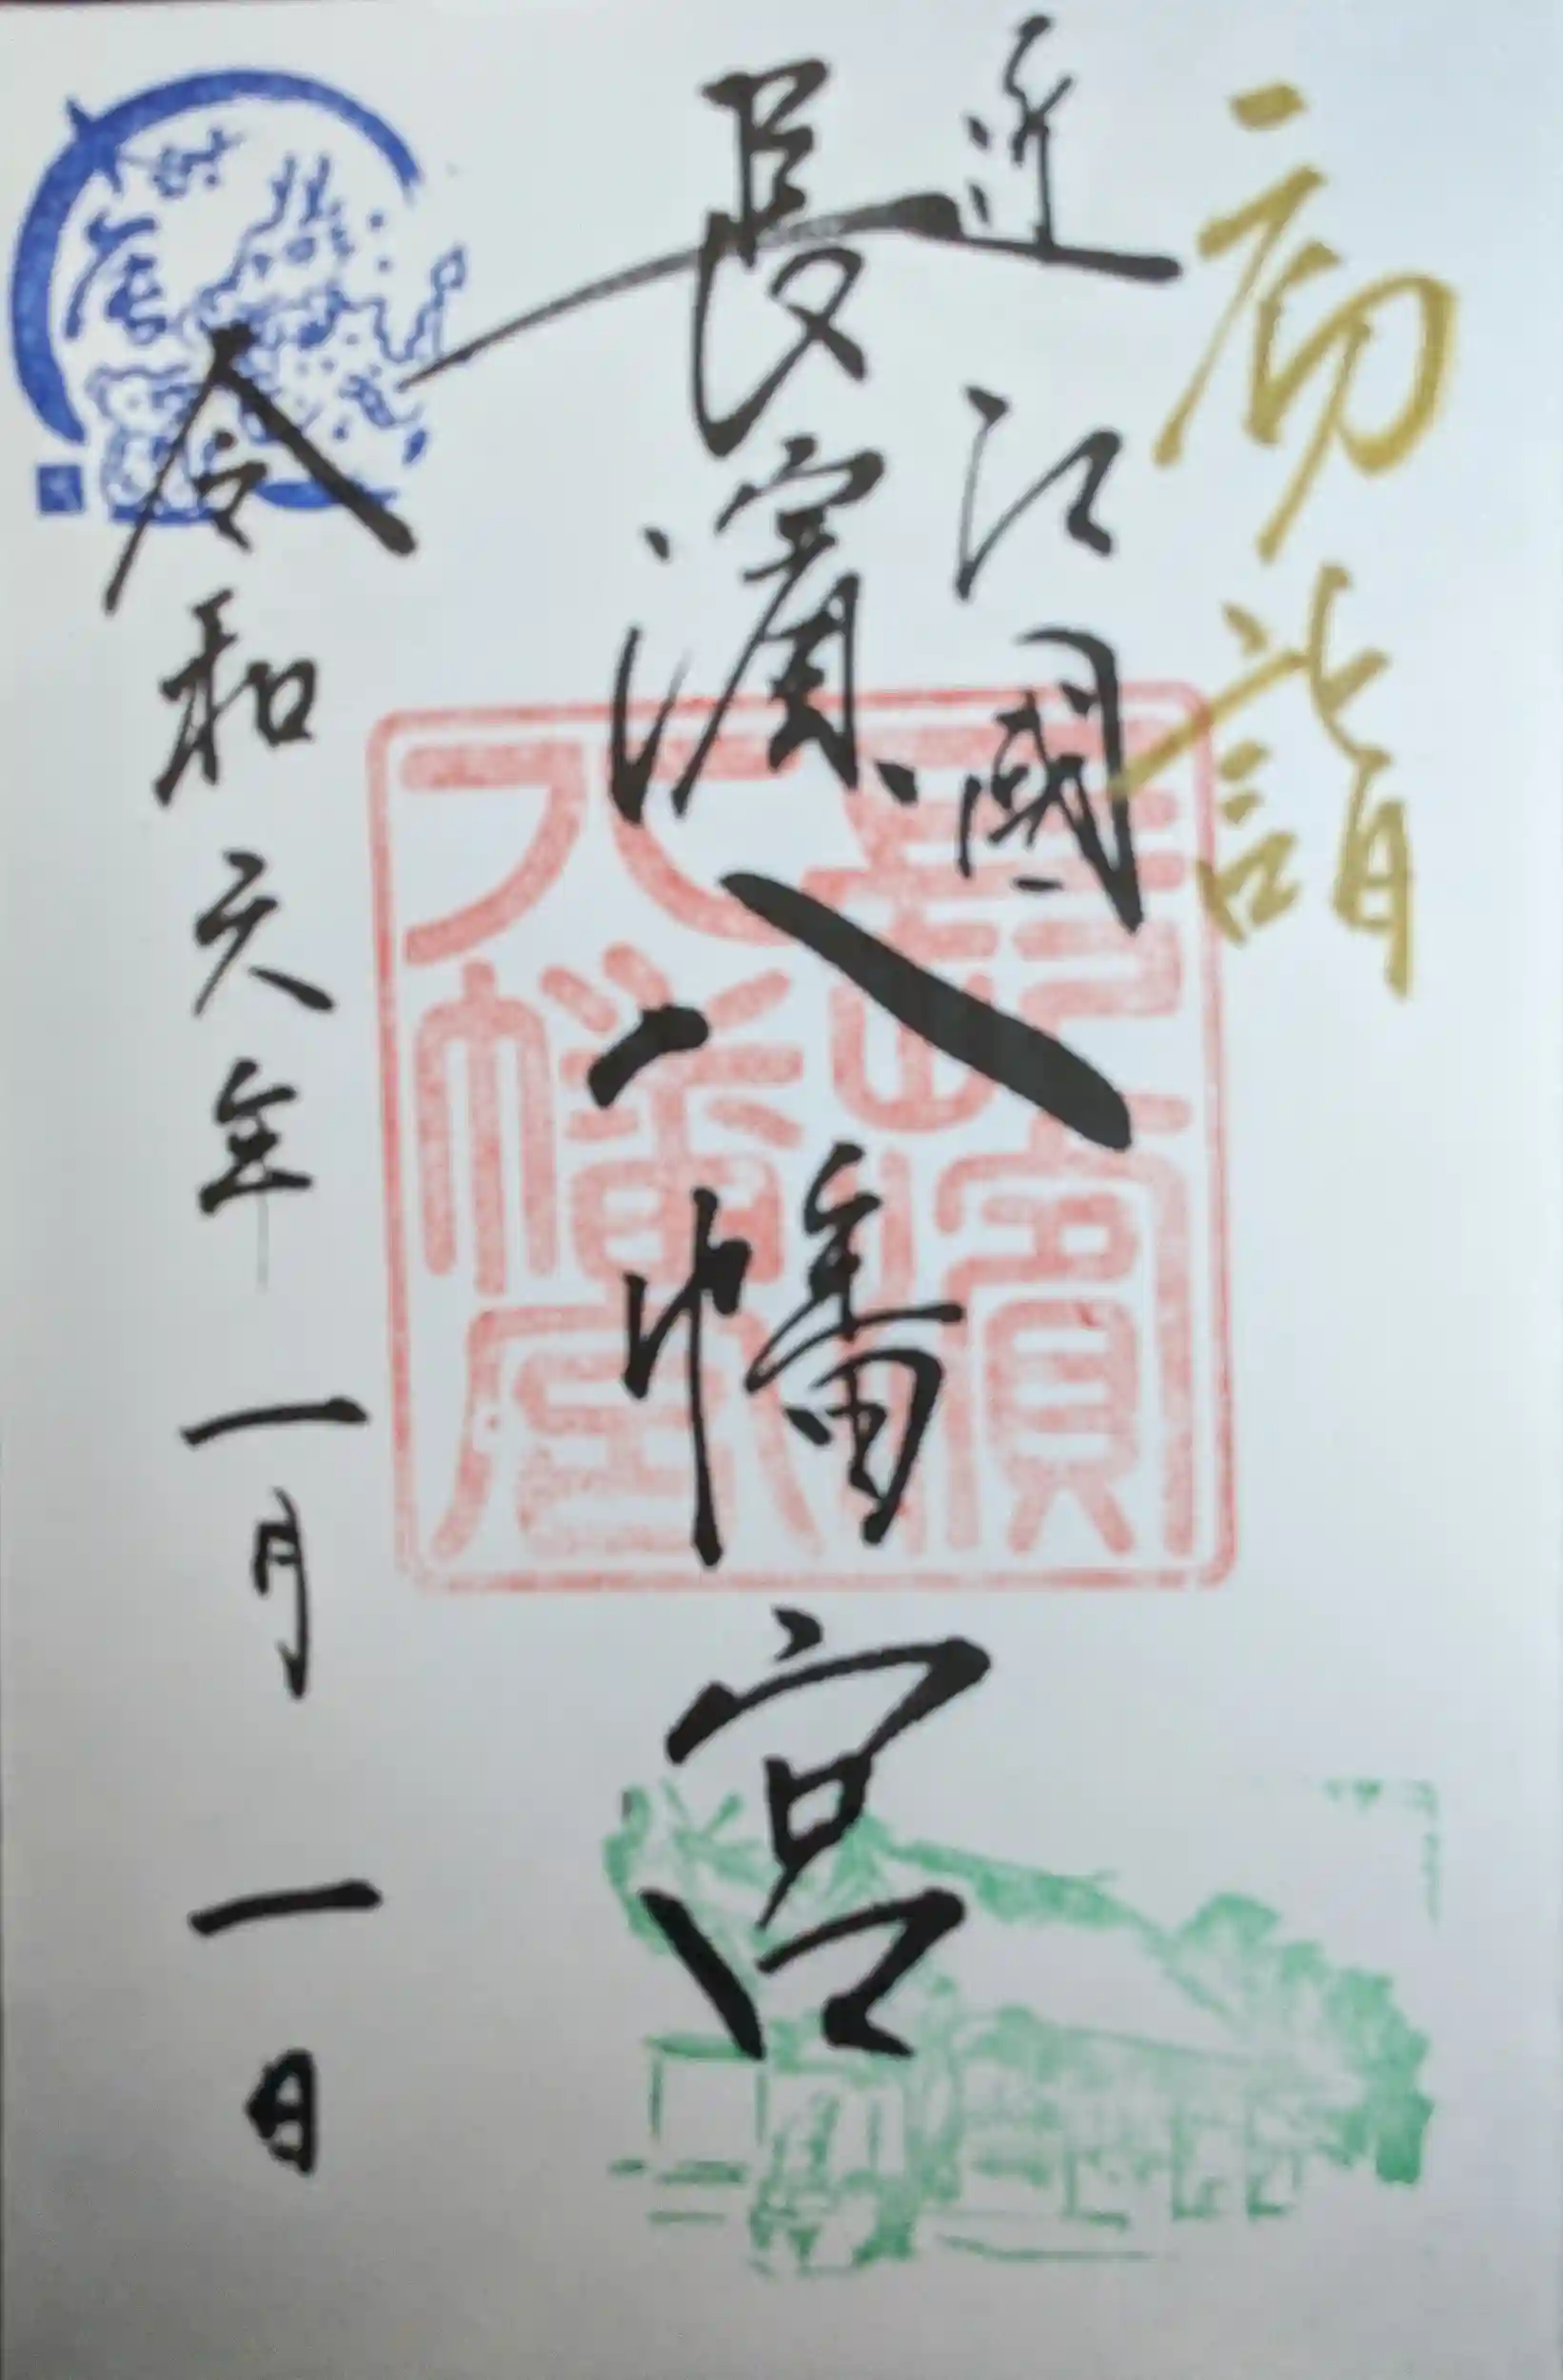 初詣
近江國
長濱八幡宮
令和元年一月一日
長濱八幡宮